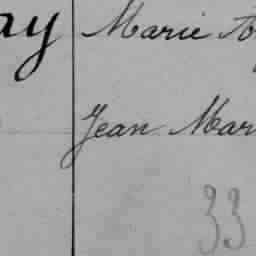 ay Marie
Jean Mar
33